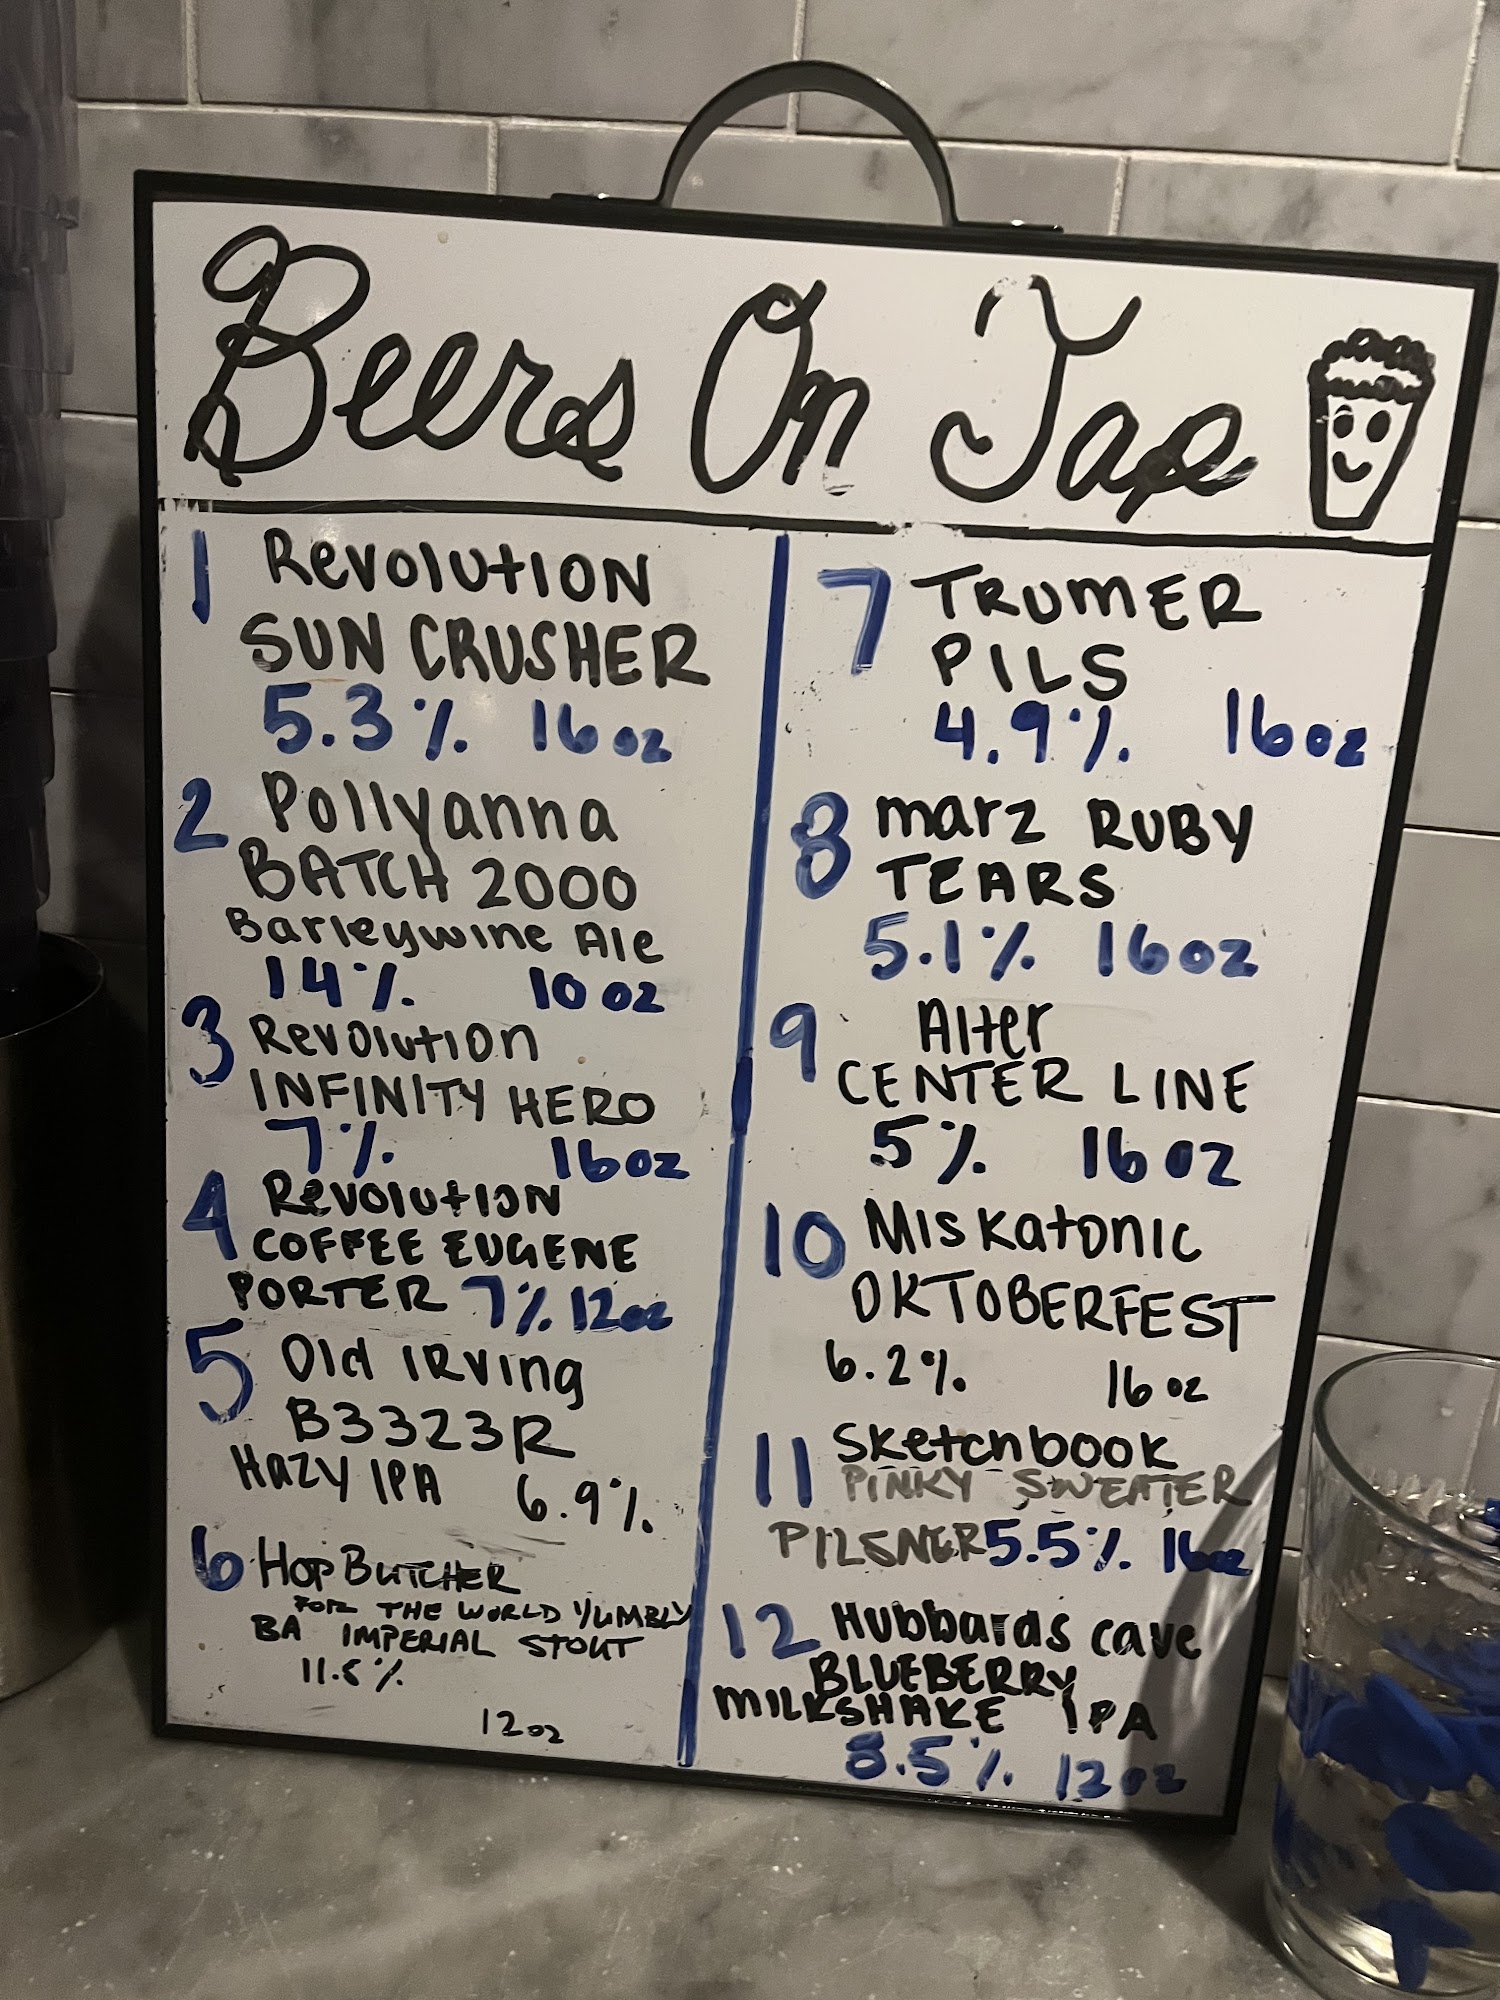 Beers On Tap
1 Revolution
SUN CRUSHER
5.3% 16oz
2 Pollyanna
BATCH 2000
Barleywine Ale
14% 10 oz
3 Revolution
INFINITY HERO
7% 16oz
4 Revolution
COFFEE EUGENE
PORTER 7% 12oz
5 Old IRVing
B3323R
HAZY IPA 6.9%
6 HOP BUTCHER
FOR THE WORLD YUMBLY
BA IMPERIAL STOUT
11.5%
12oz
7 TRUMER
PILS
4.9% 16oz
8 marz RUBY
TEARS
5.1% 16oz
9 Alter
CENTER LINE
5% 16oz
10 MisKatonic
OKTOBERFEST
6.2% 16oz
11 Sketchbook
PINKY SWEATER
PILSNER 5.5% 16oz
12 Hubbards cave
BLUEBERRY
MILKSHAKE IPA
8.5% 12oz